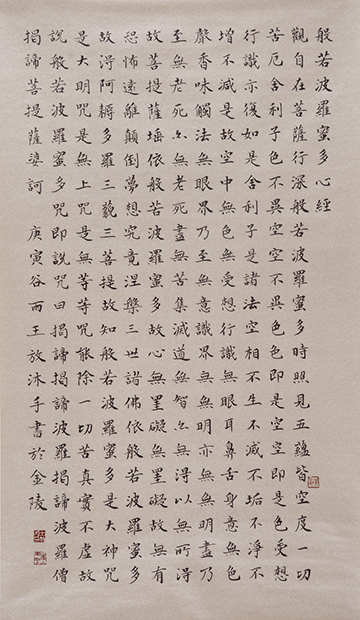 般若波羅蜜多心經
觀自在菩薩行深般若波羅蜜多時照見五蘊皆空度一切
苦厄舍利子色不異空空不異色色即是空空即是色受想
行識亦復如是舍利子是諸法空相不生不滅不垢不淨不
增不減是故空中無色無受想行識無眼耳鼻舌身意無色
聲香味觸法無眼界乃至無意識界無無明亦無無明盡乃
至無老死亦無老死盡無苦集滅道無智亦無得以無所得
故菩提薩埵依般若波羅蜜多故心無罣礙無罣礙故無有
恐怖遠離顛倒夢想究竟涅槃三世諸佛依般若波羅蜜多
故得阿耨多羅三藐三菩提故知般若波羅蜜多是大神咒
是大明咒是無上咒是無等等咒能除一切苦真實不虛故
說般若波羅蜜多咒即說咒曰揭諦揭諦波羅揭諦波羅僧
揭諦菩提薩婆訶 庚寅谷雨王放沐手書於金陵